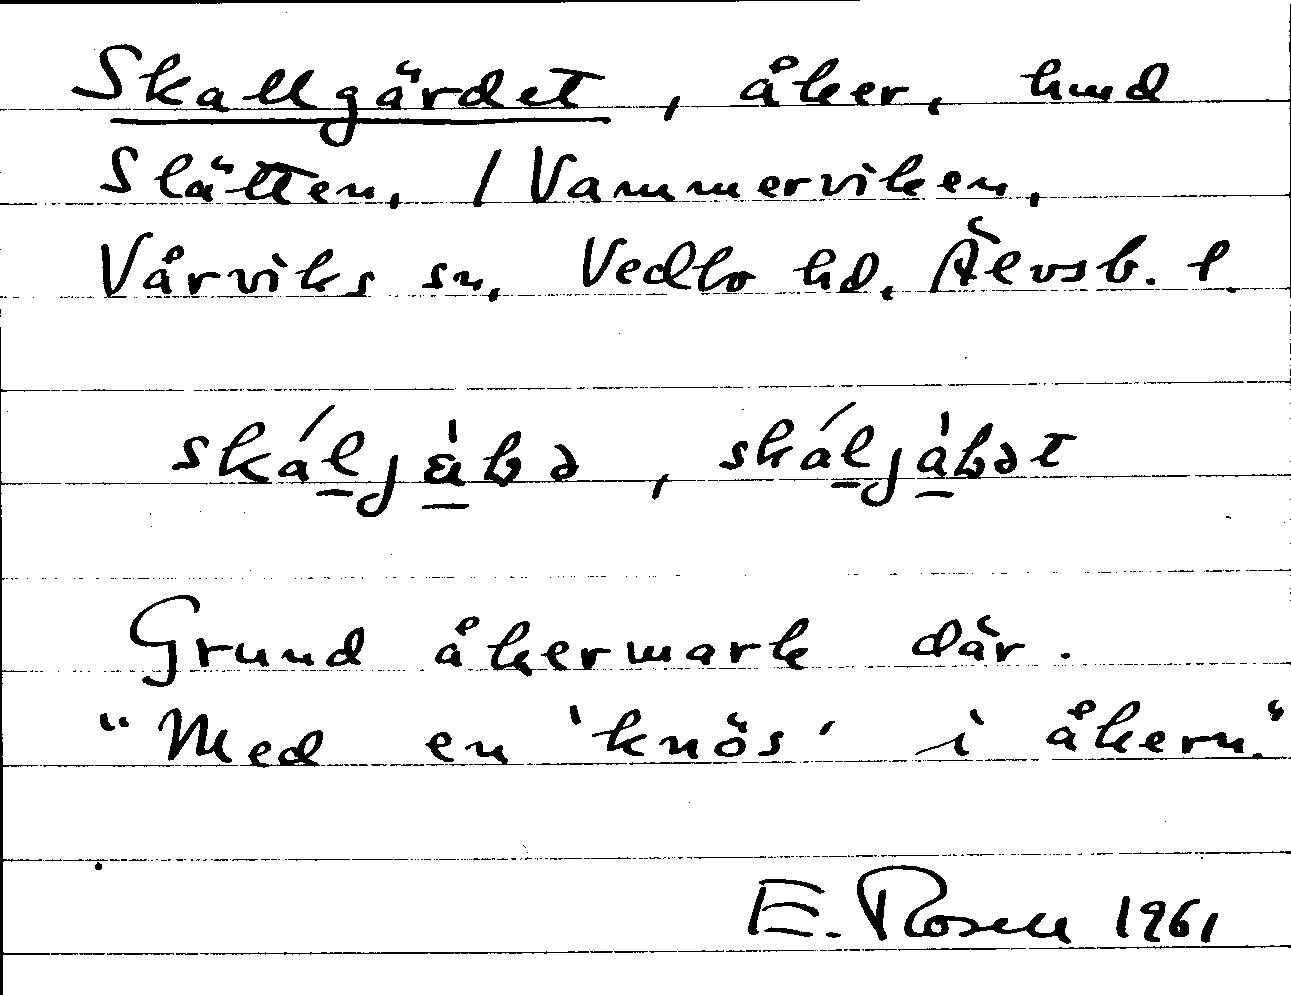 Skallgärdet, åker, hmd
Slätten, / Vammerviken,
Vårviks sn, Vedbo hd, Älvsb. l.
skáljàbə, skáljàbət
Grund åkermark där.
"Med en 'knös' i åkern."
E. Rosen 1961